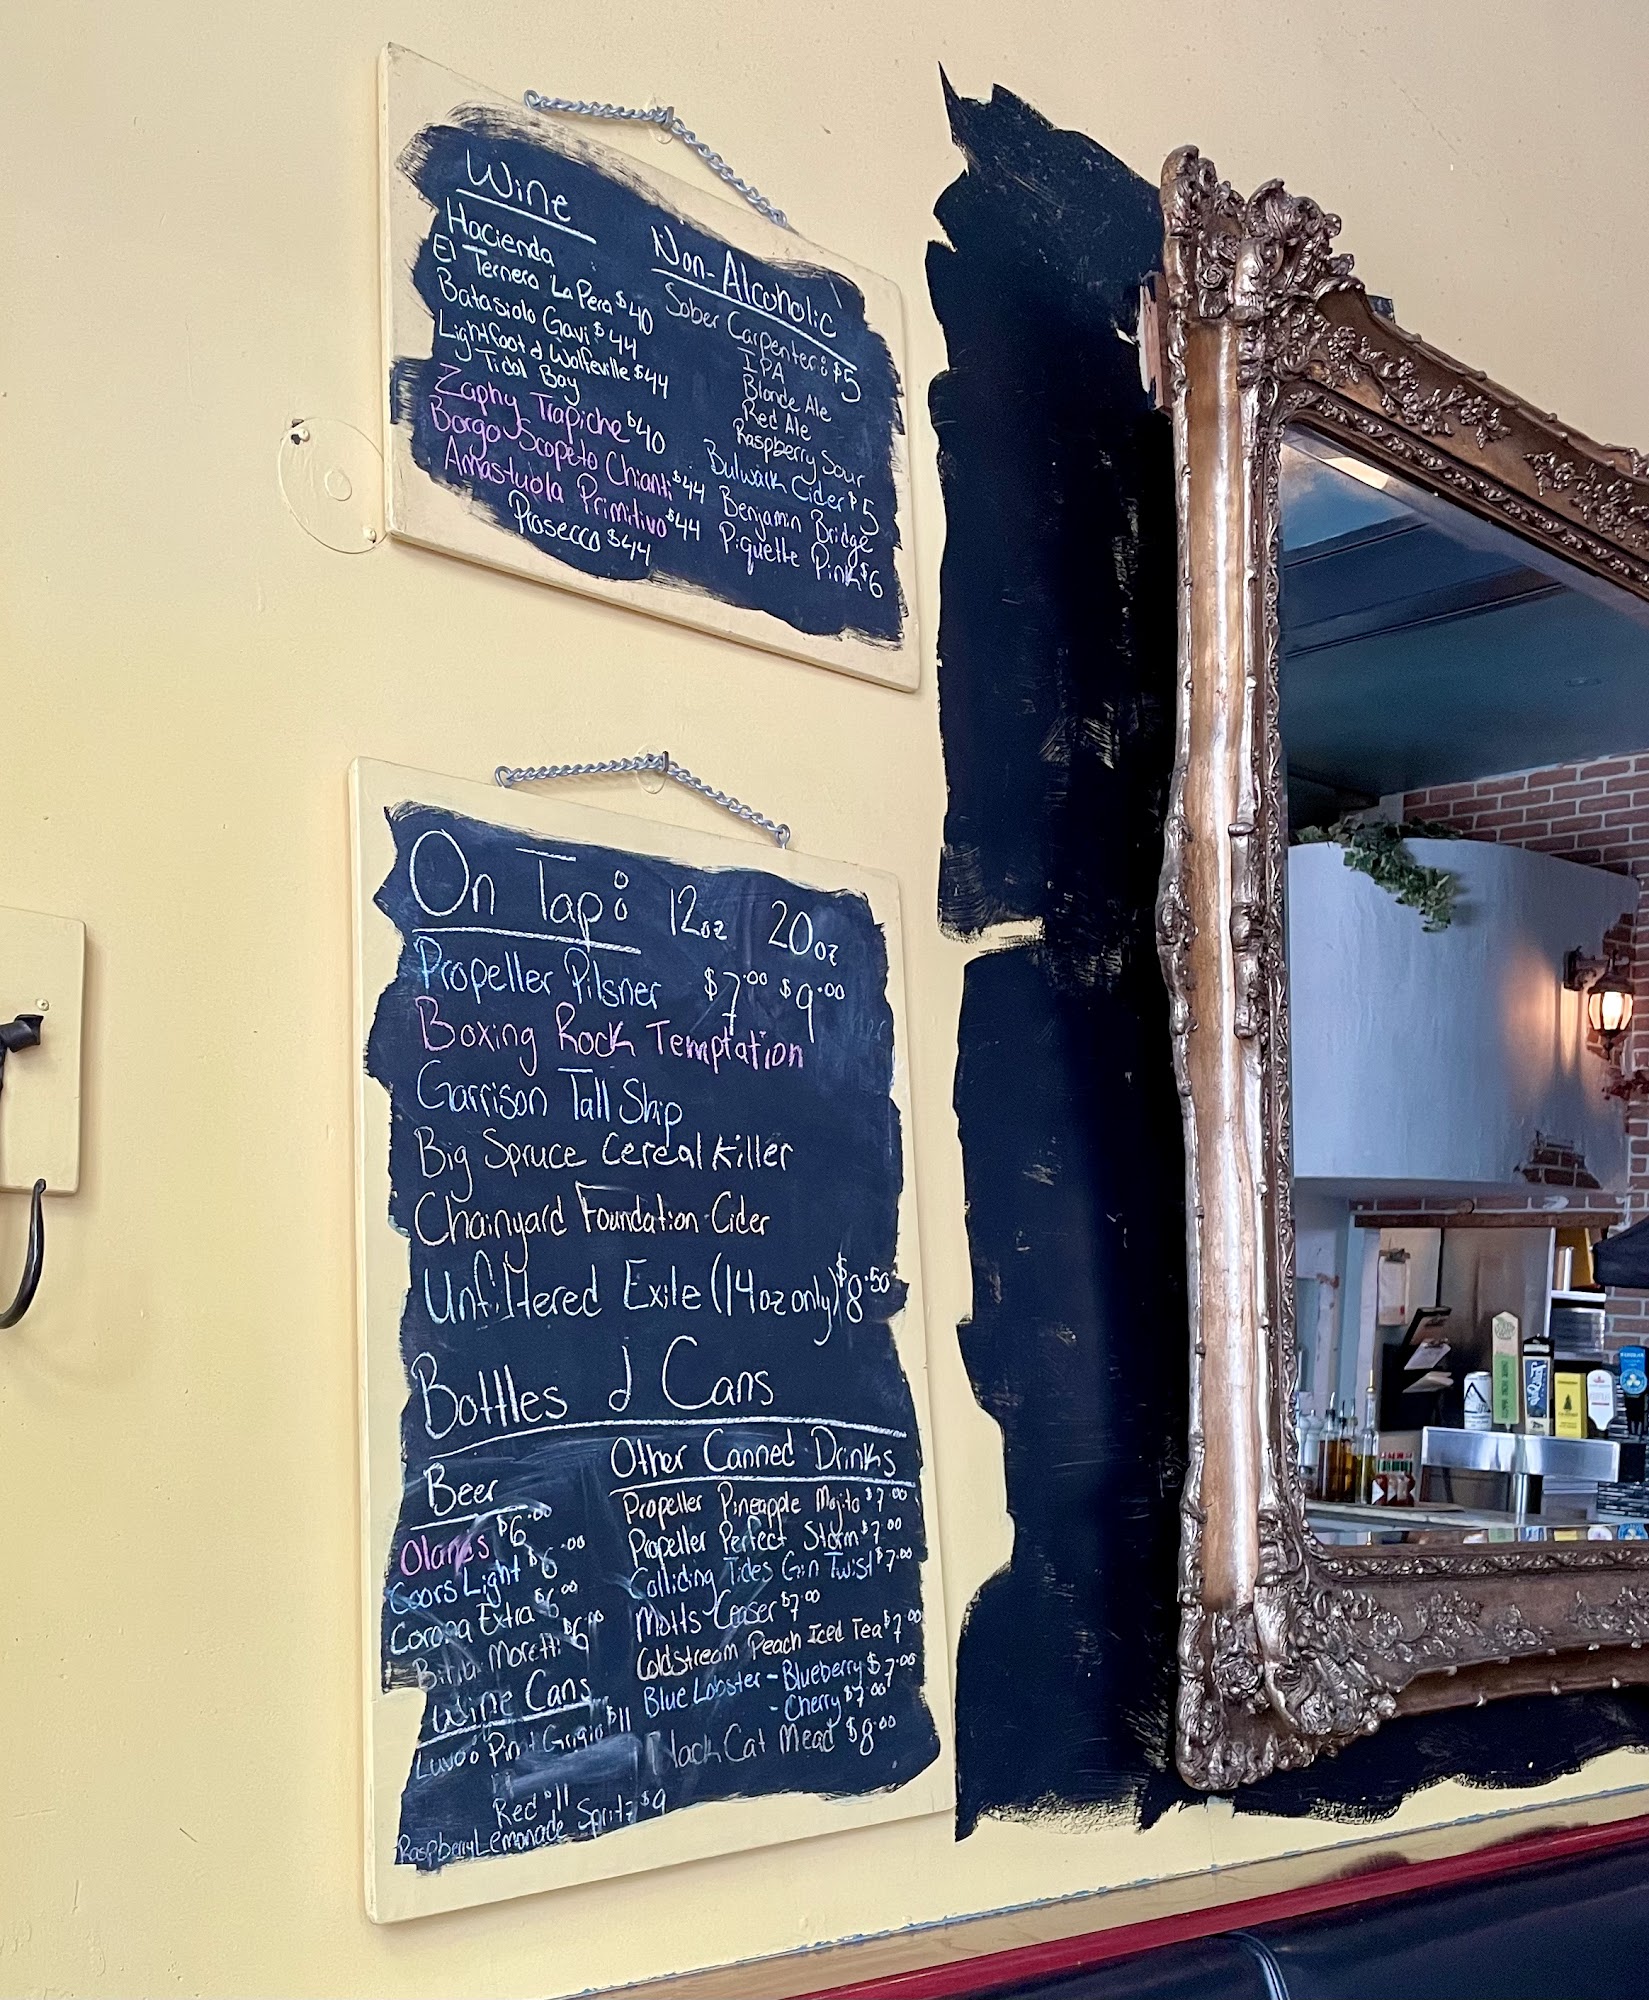 Wine
Hacienda
El Ternero La Pera $40
Batasiolo Gavi $44
Lightfoot & Wolfeville $44
Tidal Bay
Zaphy Trapiche $40
Borgo Scopeto Chianti $44
Amastuola Primitivo $44
Prosecco $44
Non-Alcoholic
Sober Carpenter: $5
IPA
Blonde Ale
Red Ale
Raspberry Sour
Bulwark Cider $5
Benjamin Bridge
Piquette Pink $6
On Tap: 12oz 20oz
Propeller Pilsner $7.00 $9.00
Boxing Rock Temptation
Garrison Tall Ship
Big Spruce Cereal Killer
Chainyard Foundation Cider
Unfiltered Exile (14oz only) $8.50
Bottles & Cans
Beer
$6.00
Coors Light $6.00
Corona Extra $6.00
Moretti $6.00
Wine Cans
Grigio $11
Red $11
Raspberry Lemonade Spritz $9
Other Canned Drinks
Propeller Pineapple Mojito $7.00
Propeller Perfect Storm $7.00
Colliding Tides Gin Twist $7.00
Motts Ceaser $7.00
Coldstream Peach Iced Tea $7.00
Blue Lobster - Blueberry $7.00
- Cherry $7.00
Cat Mead $8.00